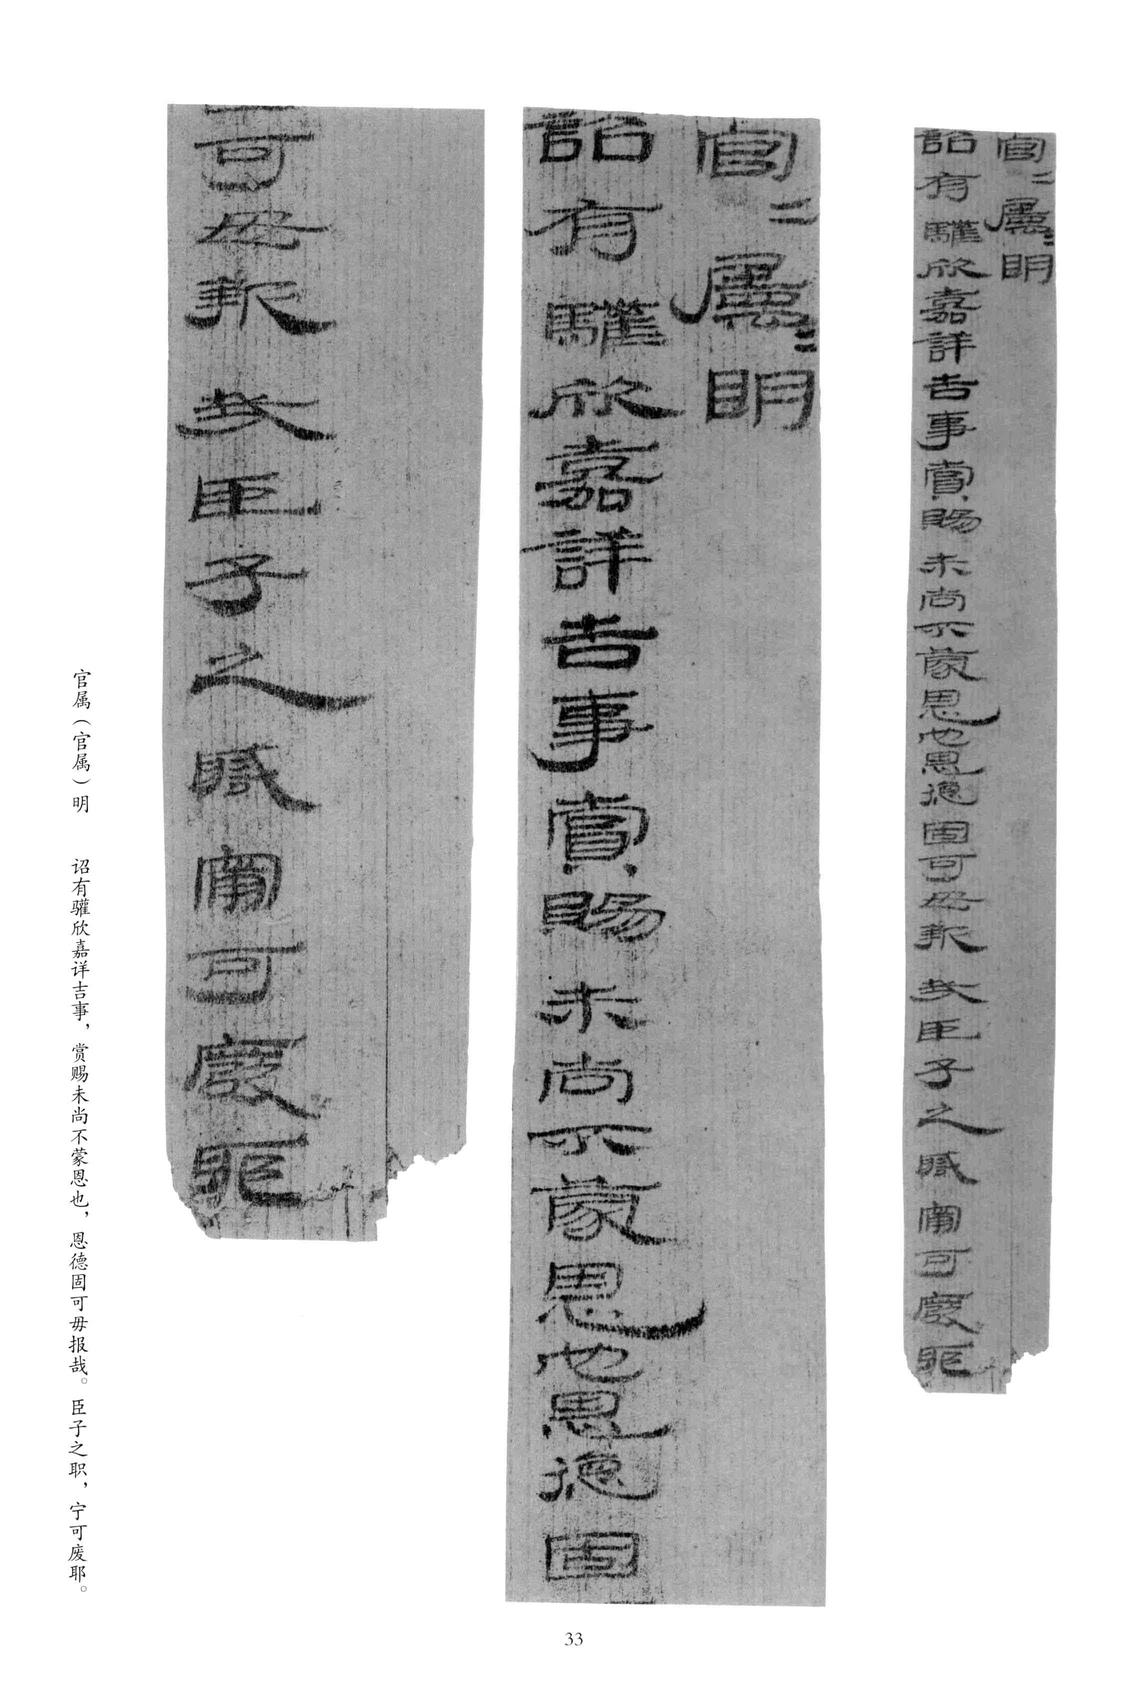 官＝属＝明
詔有驩欣嘉詳吉事賞賜未尚不蒙恩也恩德固可毋報哉臣子之職甯可廢耶
官＝属＝明
詔有驩欣嘉詳吉事賞賜未尚不蒙恩也恩德固
可毋報哉臣子之職甯可廢耶
官属（官属）明　诏有驩欣嘉详吉事，赏赐未尚不蒙恩也，恩德固可毋报哉。臣子之职，宁可废耶。
33